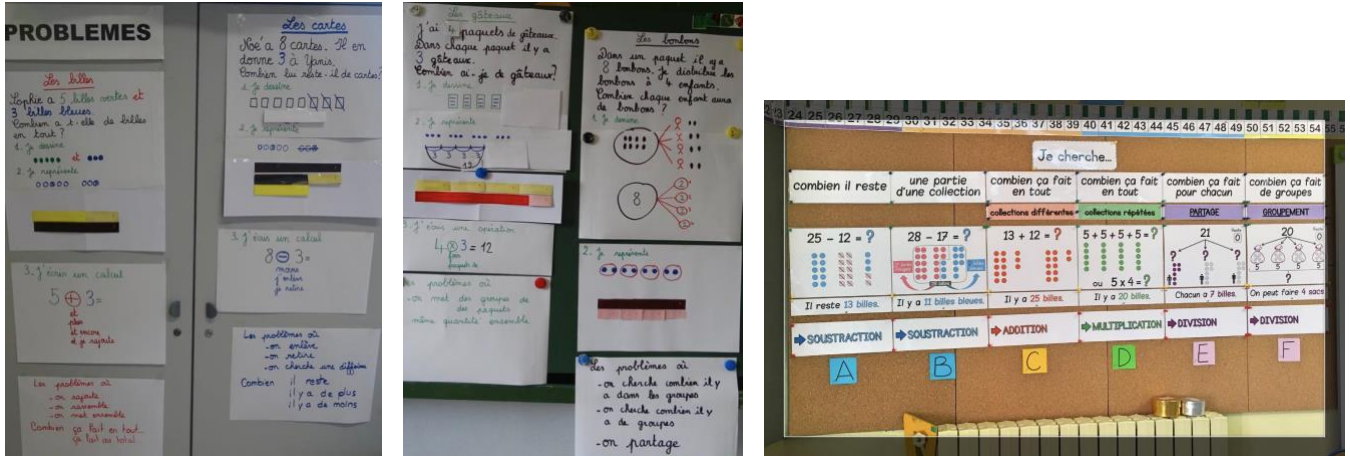 PROBLEMES
Les billes
Sophie a 5 billes vertes et
3 billes bleues.
Combien a t-elle de billes
en tout ?
1. Je dessine
et
2. Je représente
3. J'écris un calcul
5 + 3 =
et
plus
et encore
et je rajoute
Les problèmes où
- on rajoute
- on rassemble
- on met ensemble
Combien ça fait en tout...
ça fait au total...
Les cartes
Noé a 8 cartes. Il en
donne 3 à Yanis.
Combien lui reste-il de cartes?
1. Je dessine
2. Je représente
3. J'écris un calcul
8 - 3 =
moins
j'enlève
je retire
Les problèmes où
- on enlève
- on retire
- on cherche une différence
Combien il reste
il y a de plus
il y a de moins
Les gâteaux
J'ai 4 paquets de gâteaux.
Dans chaque paquet il y a
3 gâteaux.
Combien ai-je de gâteaux?
1. Je dessine
2. Je représente
3 3 3 3
12
3. J'écris une opération
4 x 3 = 12
fois
paquets de
Les problèmes où
- on met des groupes de
des paquets
même quantité ensemble
Les bonbons
Dans un paquet il y a
8 bonbons. Je distribue les
bonbons à 4 enfants.
Combien chaque enfant aura
de bonbons ?
1. Je dessine
8
2
2
2
2
2. Je représente
Les problèmes où
- on cherche combien il y
a dans les groupes
- on cherche combien il y
a de groupes
- on partage
24 25 26 27 28 29 30 31 32 33 34 35 36 37 38 39 40 41 42 43 44 45 46 47 48 49 50 51 52 53 54 55
Je cherche...
combien il reste
une partie
d'une collection
combien ça fait
en tout
combien ça fait
en tout
combien ça fait
pour chacun
combien ça fait
de groupes
collections différentes
collections répétées
PARTAGE
GROUPEMENT
25 - 12 = ?
28 - 17 = ?
13 + 12 = ?
5 + 5 + 5 + 5 = ?
ou 5 x 4 = ?
21
0
? ? ?
20
0
5 5 5 5
?
Il reste 13 billes.
Il y a 11 billes bleues.
Il y a 25 billes.
Il y a 20 billes.
Chacun a 7 billes.
On peut faire 4 sacs
SOUSTRACTION
SOUSTRACTION
ADDITION
MULTIPLICATION
DIVISION
DIVISION
A
B
C
D
E
F